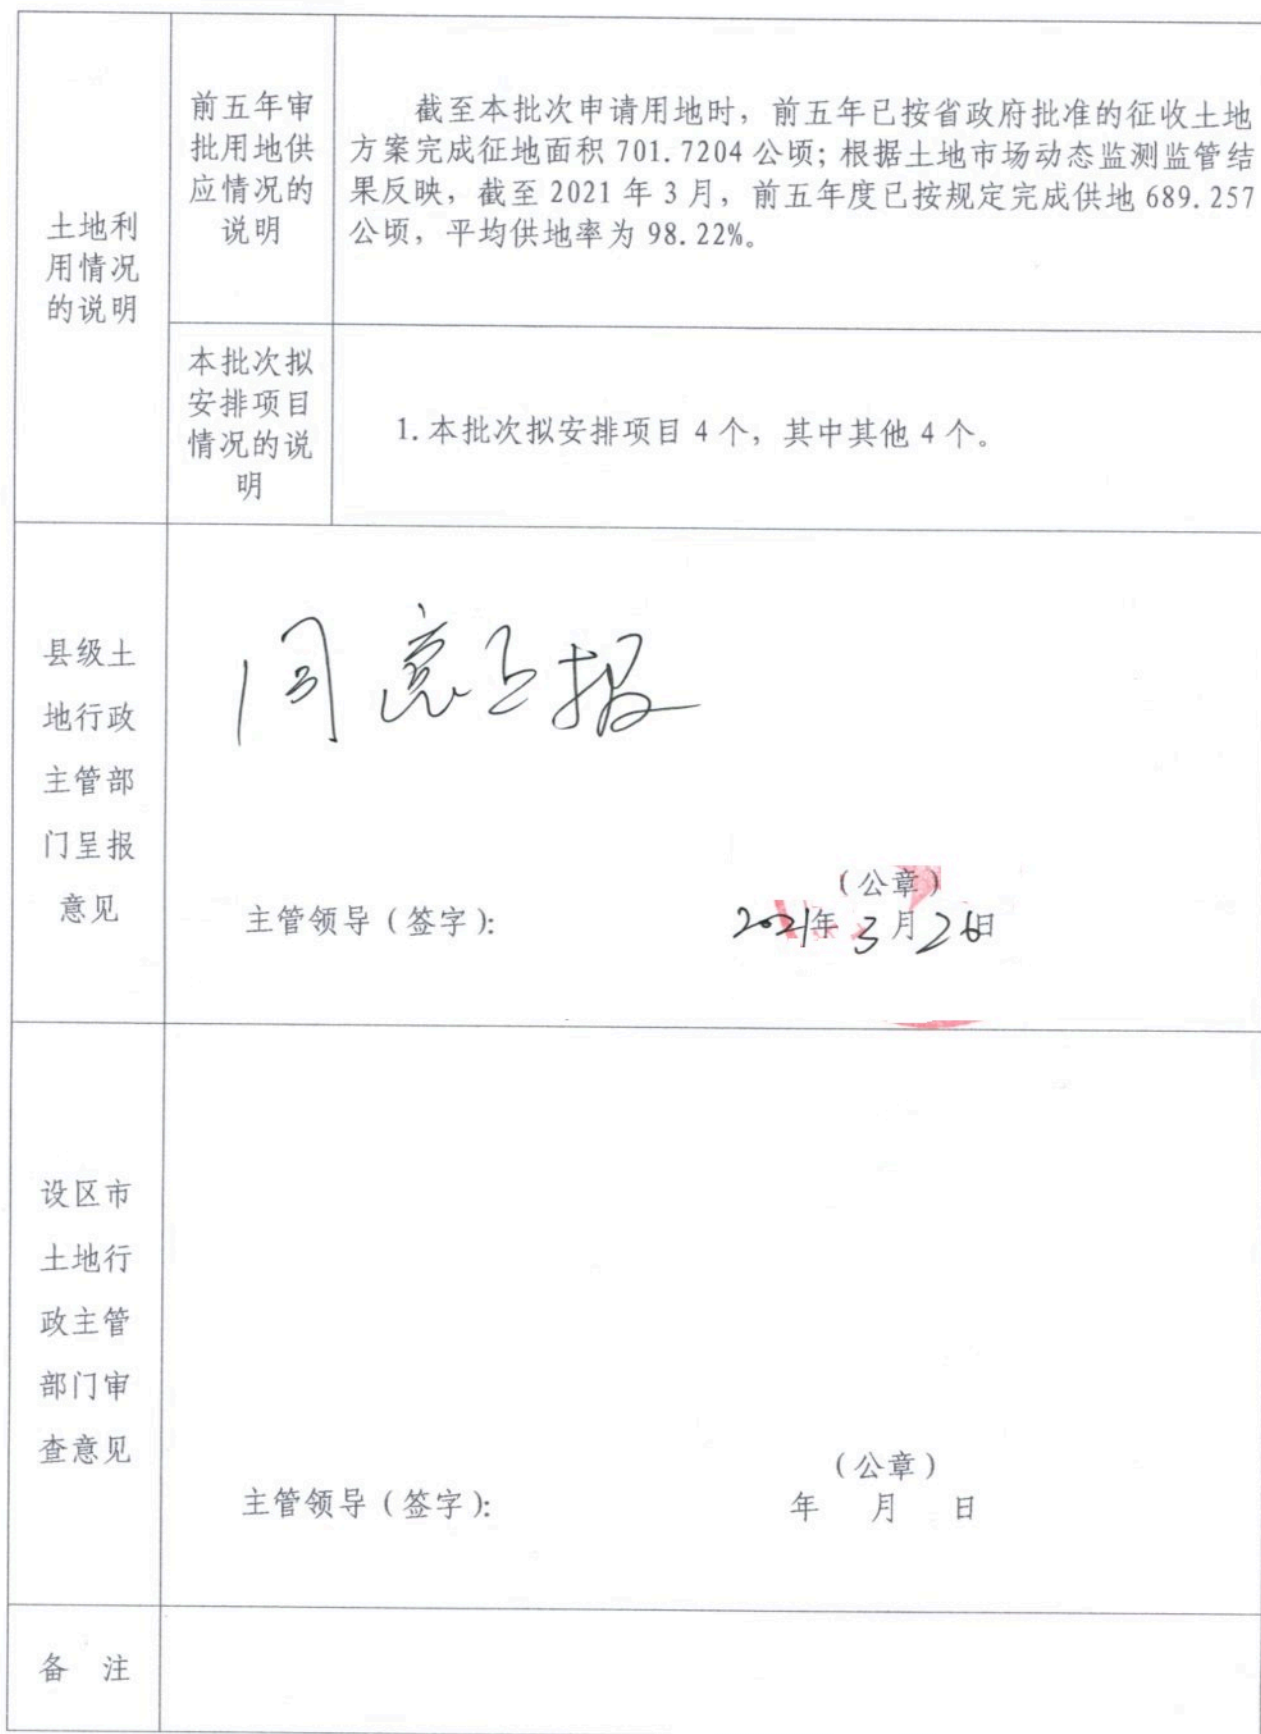 土地利
用情况
的说明
前五年审
批用地供
应情况的
说明
截至本批次申请用地时，前五年已按省政府批准的征收土地
方案完成征地面积 701.7204 公顷；根据土地市场动态监测监管结
果反映，截至 2021 年 3 月，前五年度已按规定完成供地 689.257
公顷，平均供地率为 98.22%。
本批次拟
安排项目
情况的说
明
1.本批次拟安排项目 4 个，其中其他 4 个。
县级土
地行政
主管部
门呈报
意见
同意上报
（公章）
主管领导（签字）：
2021年 3月26日
设区市
土地行
政主管
部门审
查意见
（公章）
主管领导（签字）：
年 月 日
备 注